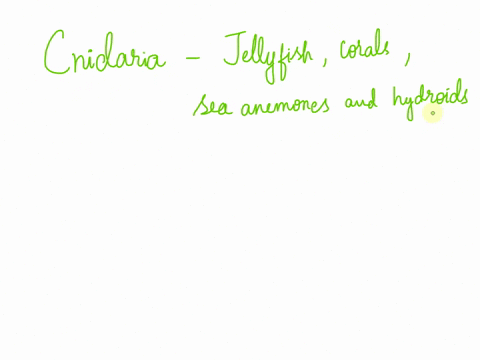 Cnidaria – Jellyfish, corals,
sea anemones and hydroids